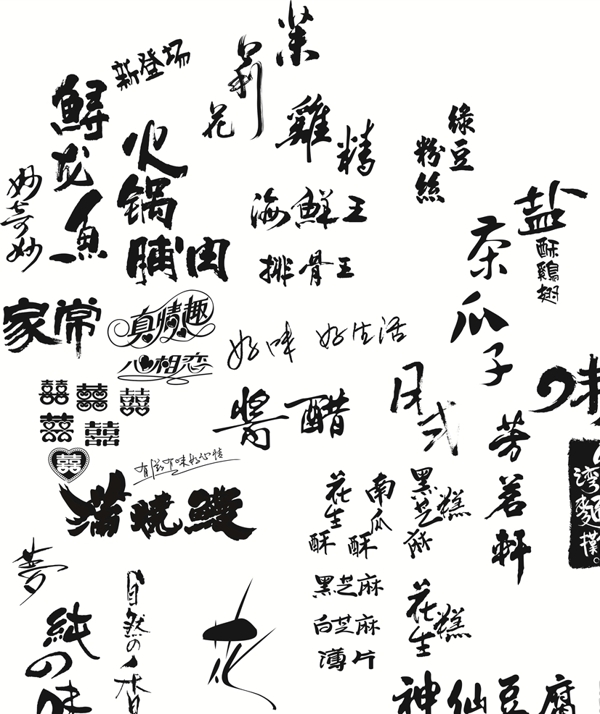 新登场
茉
莉
花
鲟龙鱼
火锅
脯肉
妙奇妙
雞精
綠豆
粉絲
海鮮王
排骨王
盐
酥鷄翅
茶瓜子
家常
真情趣
心相恋
好味 好生活
日式
味
囍囍囍
囍囍
囍
醬醋
有滋有味好心情
蒲燒鰻
芳茗軒
湾
花生酥
南瓜酥
黑芝麻
白芝麻
薄片
黑芝麻糕
花生糕
夢
純の味
自然の
花
神仙豆腐